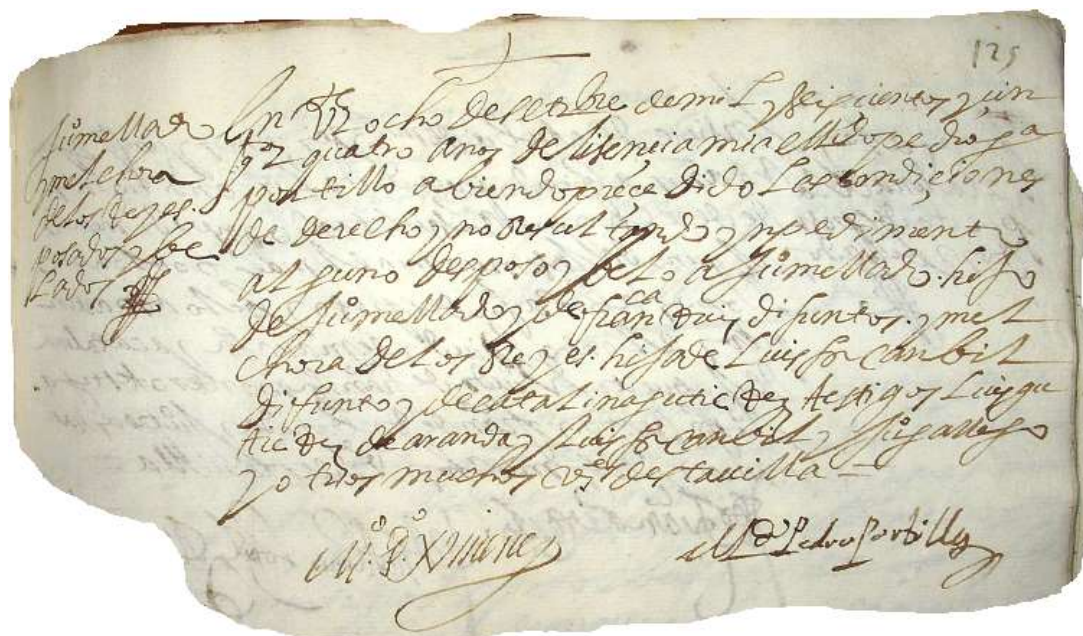 129
Juo mellado
y melchora
de los Reyes.
posados y be
lados
En ocho de setbre de mil y seiscientos y cin
quatro años de lisençia mia el Mdo pedro ga
portillo abiendo preçedido las condiciones
de derecho y no Resultando ynpedimento
alguno despose y bele a Juo mellado. hijo
de Juo mellado y de franca Ruiz difuntos. y mel
chora de los Reyes. hija de Luis frr canbil
difunto y de catalina gutierrez testigos Luis gu
tierrez de aranda y Luis frr canbil y
y otros muchos vos desta villa
Mo. Po. Ximenez
Mdo Pedro Portillo